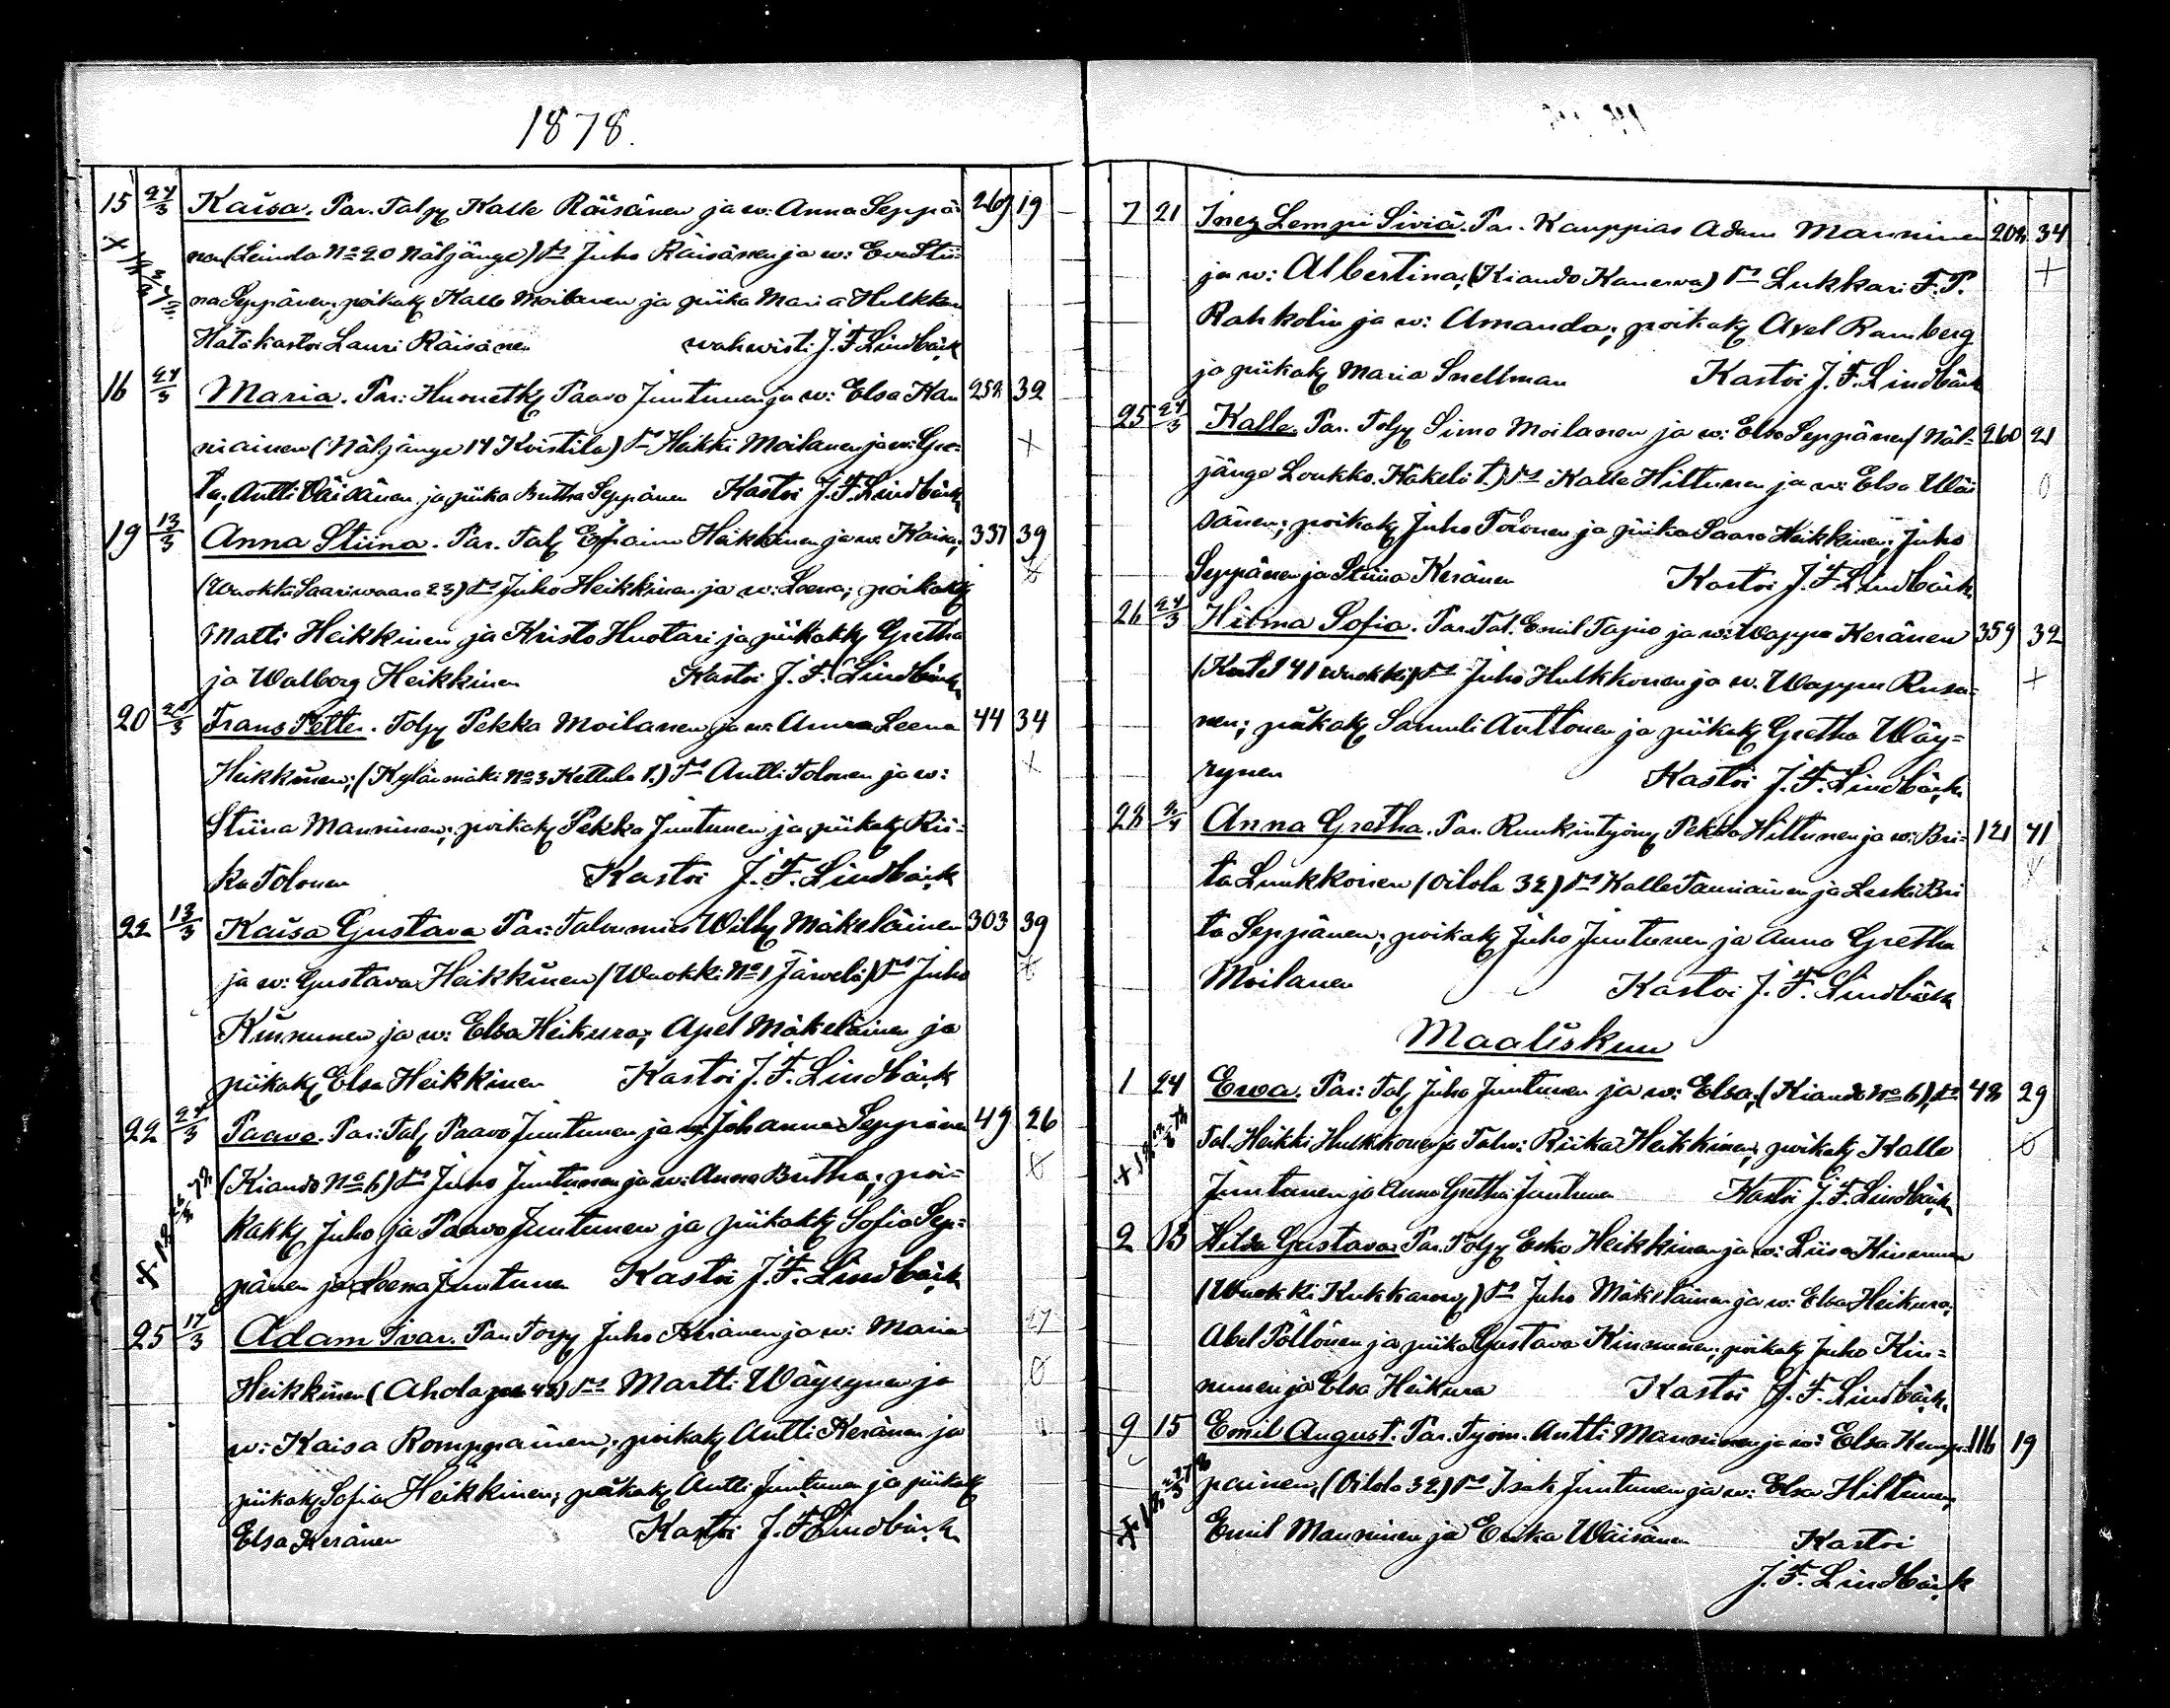 1878.
15 24/3 Kaisa. Par. Talpy Kalle Räisänen ja w: Anna Seppä- 269 19
nen (Leinola No 20 Näljänge) Ts Juho Räisänen ja w: Eva Stii-
na Seppänen; poikaky Kalle Moilanen ja piika Maria Hulkkonen
Hätäkastoi Lauri Räisänen wahwisti J. F. Lindbäck
16 24/3 Maria. Par: Huonetky Paavo Juntunen ja w: Elsa Kan 252 32
niainen (Näljänge 14 Koistila) Ts Heikki Moilanen ja w: Gre-
ta; Antti Väisänen ja piika Britha Seppänen Kastoi J. F. Lindbäck
19 13/3 Anna Stiina. Par. Tal Efraim Heikkinen ja w: Kaisa; 331 39
(Wuokki Saariwaara 23) Ts Juho Heikkinen ja w: Leena; poikakky
Matti Heikkinen ja Kristo Huotari ja piikakky Gretha
ja Walborg Heikkinen Kastoi J. F. Lindbäck
20 Frans Petter. Tolpy Pekka Moilanen ja w: Anna Leena 44 34
Heikkinen; (Kylänmäki No 3 Kettula t.) Ts Antti Tolonen ja w:
Stiina Manninen; poikaky Pekka Juntunen ja piikaky Rii-
ka Tolonen Kastoi J. F. Lindbäck
22 13/3 Kaisa Gustava Par: Talonmies Willy Mäkeläinen 303 39
ja w: Gustava Heikkinen (Wuokki No 1 Järwelä) Ts Juho
Kinnunen ja w: Elsa Heikura; Apel Mäkeläinen ja
piikaky Elsa Heikkinen Kastoi J. F. Lindbäck
22 24/3 Paavo. Par: Tal Paavo Juntunen ja w: Johanna Seppänen 49 26
(Kiando No 6) Ts Juho Juntunen ja w: Anna Britha; poi-
kakky Juho ja Paavo Juntunen ja piikakky Sofia Sep-
pänen ja Leena Juntunen Kastoi J. F. Lindbäck
25 17/3 Adam Ivar. Par. Torpy Juho Keränen ja w: Maria 27
Heikkinen (Ahola 42) Ts Martti Wäyrynen ja
w: Kaisa Romppainen; poikaky Antti Keränen ja
piikaky Sofia Heikkinen; poikaky Antti Juntunen ja piikaky
Elsa Keränen Kastoi J. F. Lindbäck
7 21 Inez Lempi Siviä. Par. Kauppias Adam Manninen 202 34
ja w: Albertina; (Kiando Kanerva) Ts Lukkari F. P.
Rahkolin ja w: Amanda; poikaky Axel Ramberg
ja piikaky Maria Snellman Kastoi J. F. Lindbäck
25 24/3 Kalle. Par. Tolpy Simo Moilanen ja w: Elsa Seppänen (Näl- 260 21
jänge Loukko. Käkelä t.) Ts Kalle Hiltunen ja w: Elsa Wäi
sänen; poikaky Juho Tolonen ja piika Saara Heikkinen; Juho
Seppänen ja Stiina Keränen Kastoi J. F. Lindbäck
26 24/3 Hilma Sofia. Par. Tal. Emil Tapio ja w: Wappu Keränen 359 32
(41 Wuokki) Ts Juho Hulkkonen ja w. Wappu Rusa-
nen; poikaky Samuli Anttonen ja piikaky Gretha Wäy-
rynen Kastoi J. F. Lindbäck
28 Anna Gretha. Par. Ruukintyöm Pekka Hiltunen ja w: Bri- 121 41
ta Luukkonen (Oilola 32) Ts Kalle Tauriainen ja Leski Bri
ta Seppänen; poikaky Juho Juntunen ja Anna Gretha
Moilanen Kastoi J. F. Lindbäck
Maaliskuu
1 24 Ewa. Par: Tal Juho Juntunen ja w: Elsa; (Kiando No 6), Ts 48 29
Tal. Heikki Hulkkonen ja Talw: Riika Heikkinen; poikaky Kalle
Juntunen ja Anna Gretha Juntunen Kastoi J. F. Lindbäck
2 13 Hilda Gustava. Par. Tolpy Esko Heikkinen ja w: Liisa Kinnunen
(Wuokki Kukkawaara) Ts Juho Mäkeläinen ja w: Elsa Heikura;
Abel Pöllönen ja piika Gustava Kinnunen; poikaky Juho Kin-
nunen ja Elsa Heikura Kastoi J. F. Lindbäck.
9 15 Emil August. Par. Työm. Antti Manninen ja w: Elsa Kemp- 116 19
painen; (Oilola 32) Ts Isak Juntunen ja w: Elsa Hiltunen;
Emil Manninen ja Erika Wäisänen Kastoi
J. F. Lindbäck